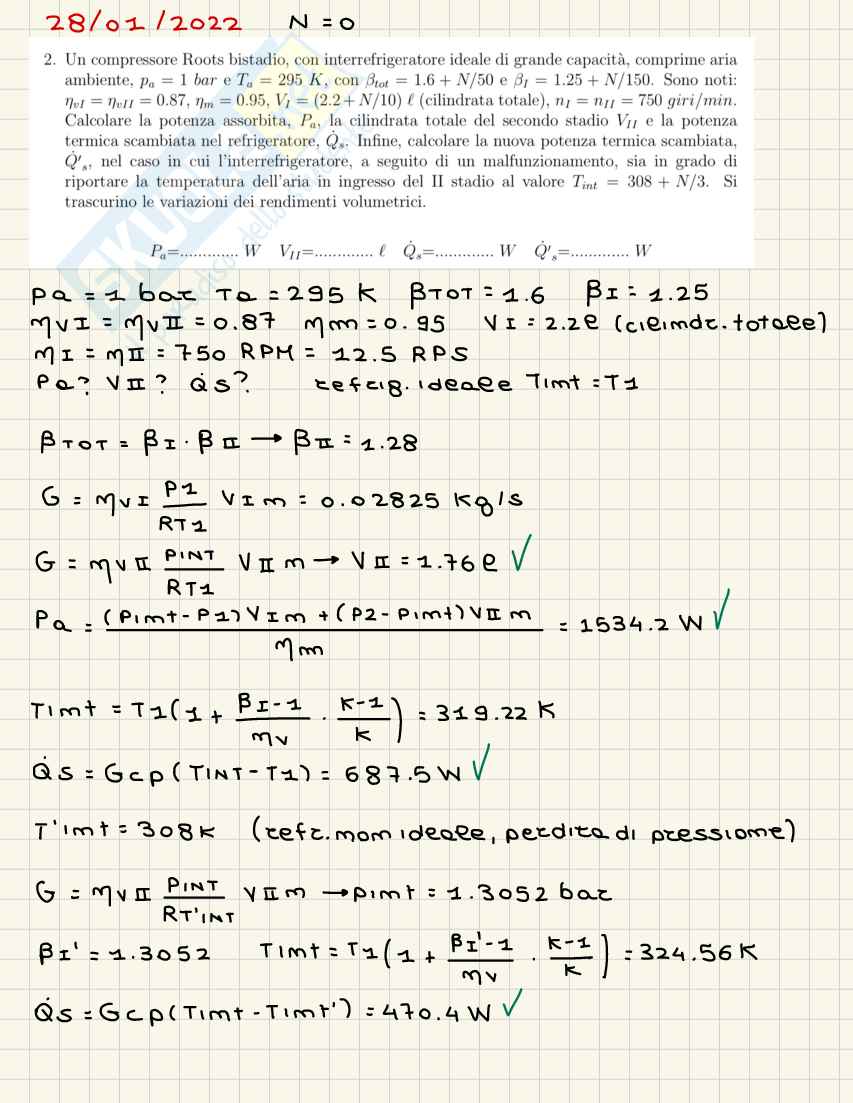 28/01/2022 N = 0
2. Un compressore Roots bistadio, con interrefrigeratore ideale di grande capacità, comprime aria
ambiente, p_a = 1 bar e T_a = 295 K, con β_tot = 1.6 + N/50 e β_I = 1.25 + N/150. Sono noti:
η_vI = η_vII = 0.87, η_m = 0.95, V_I = (2.2 + N/10) ℓ (cilindrata totale), n_I = n_II = 750 giri/min.
Calcolare la potenza assorbita, P_a, la cilindrata totale del secondo stadio V_II e la potenza
termica scambiata nel refrigeratore, Q̇_s. Infine, calcolare la nuova potenza termica scambiata,
Q̇'_s, nel caso in cui l'interrefrigeratore, a seguito di un malfunzionamento, sia in grado di
riportare la temperatura dell'aria in ingresso del II stadio al valore T_int = 308 + N/3. Si
trascurino le variazioni dei rendimenti volumetrici.
P_a=............. W V_II=............. ℓ Q̇_s=............. W Q̇'_s=............. W
Pa = 1 bar Ta = 295 K βTOT = 1.6 βI = 1.25
ηVI = ηVII = 0.87 ηm = 0.95 VI = 2.2ℓ (cilindr. totale)
nI = nII = 750 RPM = 12.5 RPS
Pa? VII? Q̇s? refrig. ideale Tint = T1
βTOT = βI · βII → βII = 1.28
G = ηVI P1/RT1 VI n = 0.02825 Kg/s
G = ηVII PINT/RT1 VII n → VII = 1.76 ℓ √
Pa = ((Pint - P1) VI n + (P2 - Pint) VII n)/ηm = 1534.2 W √
Tint = T1(1 + (βI - 1)/ηv · (K-1)/K) = 319.22 K
Q̇s = Gcp(TINT - T1) = 687.5 W √
T'int = 308K (refr. non ideale, perdita di pressione)
G = ηVII PINT/RT'INT VII n → pint = 1.3052 bar
βI' = 1.3052 Tint = T1(1 + (βI' - 1)/ηv · (K-1)/K) = 324.56 K
Q̇s = Gcp(Tint - Tint') = 470.4 W √